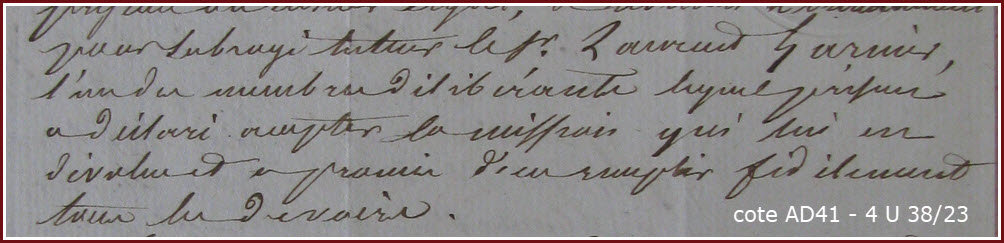 pour subrogé tuteur le Sr. Laurent Garnier,
l'un des membres délibérants lequel présent
a déclaré accepter la mission qui lui en
dévolue et a promis d'en remplir fidèlement
tous les devoirs.
cote AD41 - 4 U 38/23